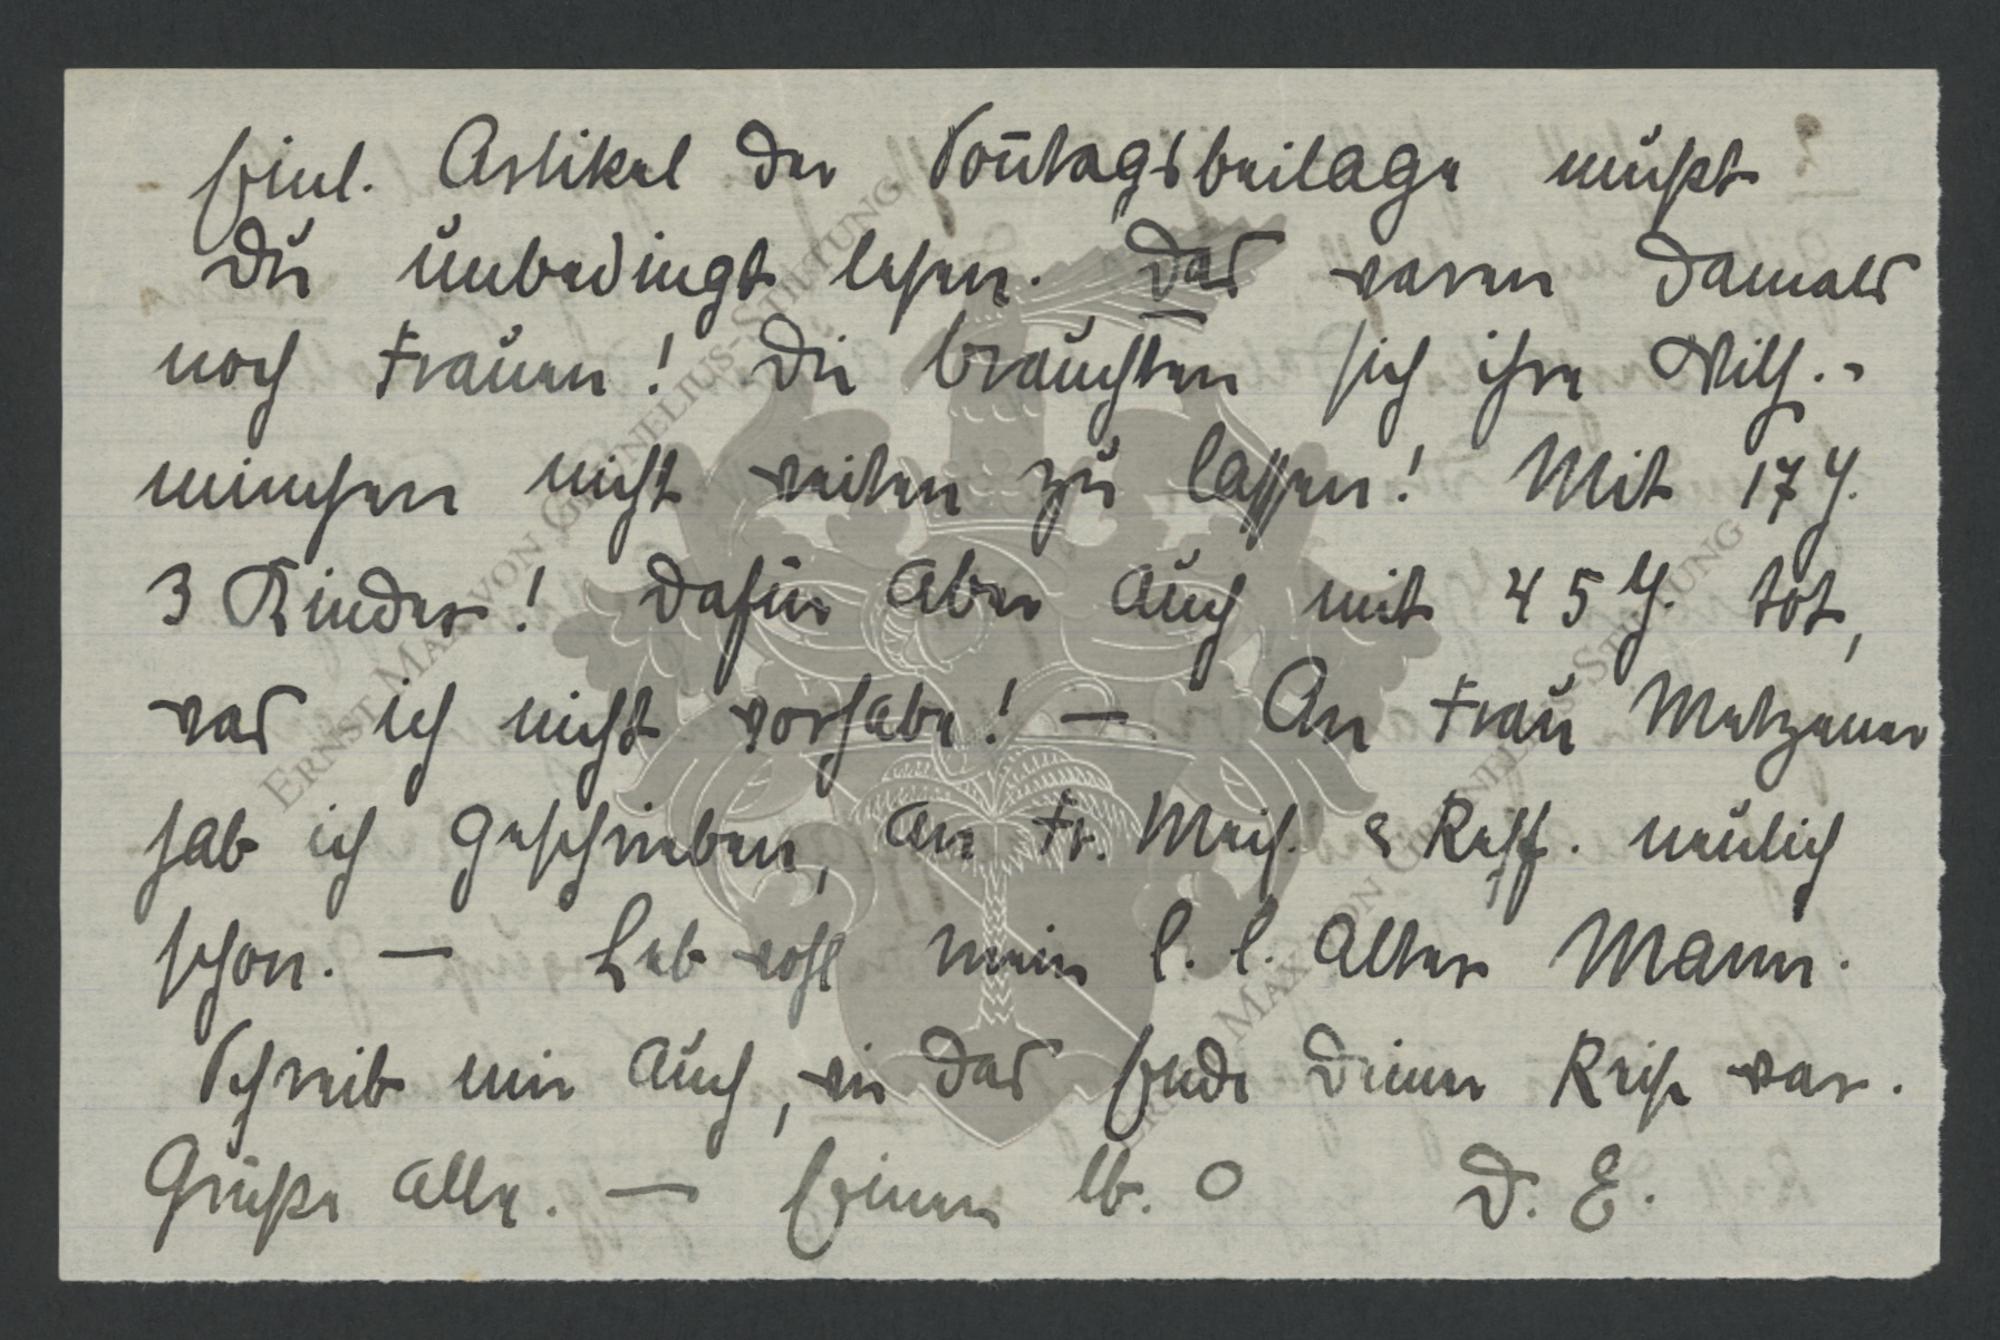 Einl. Artikel der Soñtagsbeilage mußt
Du unbedingt lesen. Das waren damals
noch Frauen! Die brauchten sich ihre Wilh.-
minchen nicht reiten zu lassen! Mit 17 J.
3 Kinder! Dafür aber auch mit 45 J. tot,
was ich nicht vorhabe! — An Frau Metzener
hab ich geschrieben, an Fr. Meis. & Reff. neulich
schon. — Leb wohl mein l. l. alter Mann.
Schreib mir auch, wie das Ende Deiner Reise war.
Grüße alle. — Einen lb. O D. E.
ERNST MAX VON GRUNELIUS-STIFTUNG
ERNST MAX VON GRUNELIUS-STIFTUNG